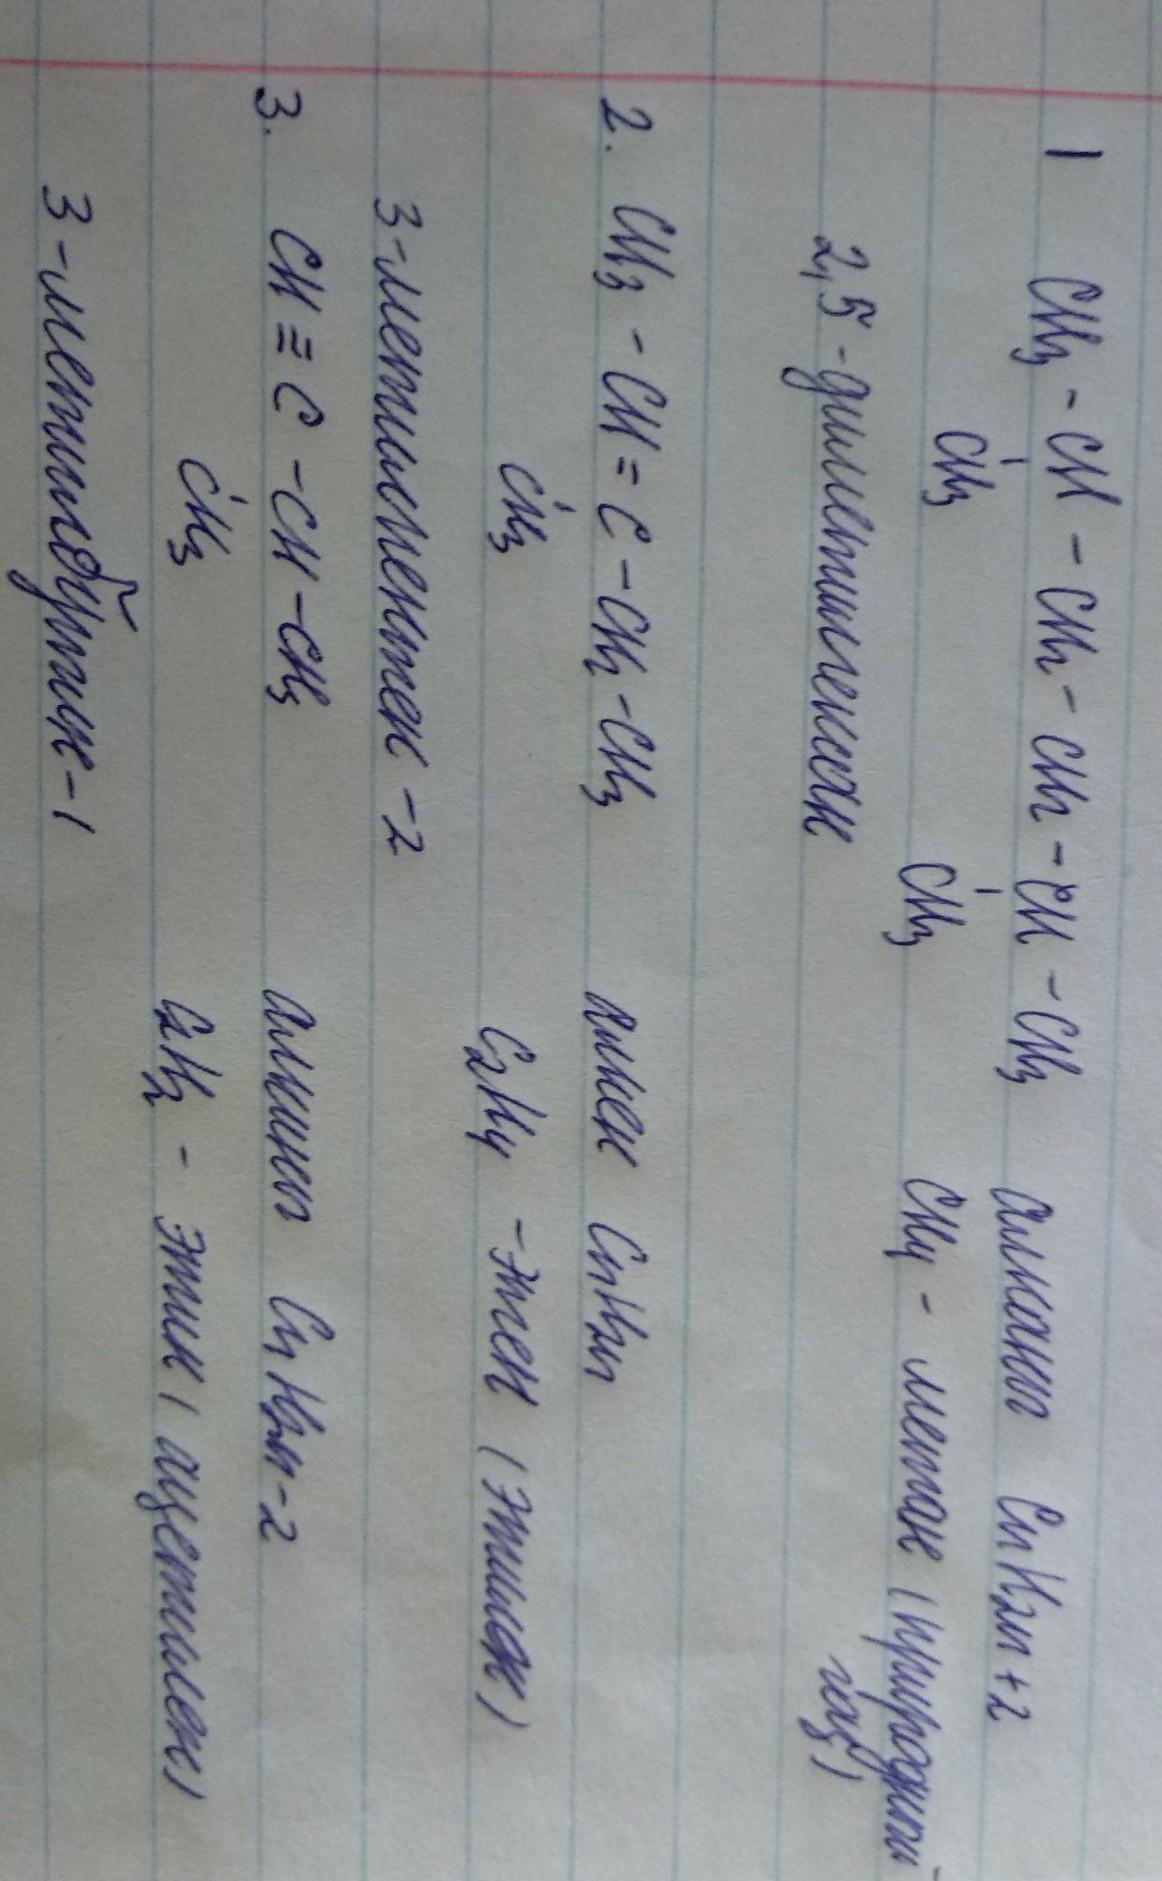 1 CH₃ - CH - CH₂ - CH₂ - CH - CH₃ Алканы CnH2n+2
CH₃ CH₃ CH₄ - метан (природный
2,5 - диметилгексан газ)
2. CH₃ - CH = C - CH₂ - CH₃ Алкен CnH2n
CH₃ C₂H₄ - этен (этилен)
3-метилпентен -2
3. CH ≡ C - CH - CH₃ Алкины CnH2n-2
CH₃ C₂H₂ - этин (ацетилен)
3-метилбутин-1